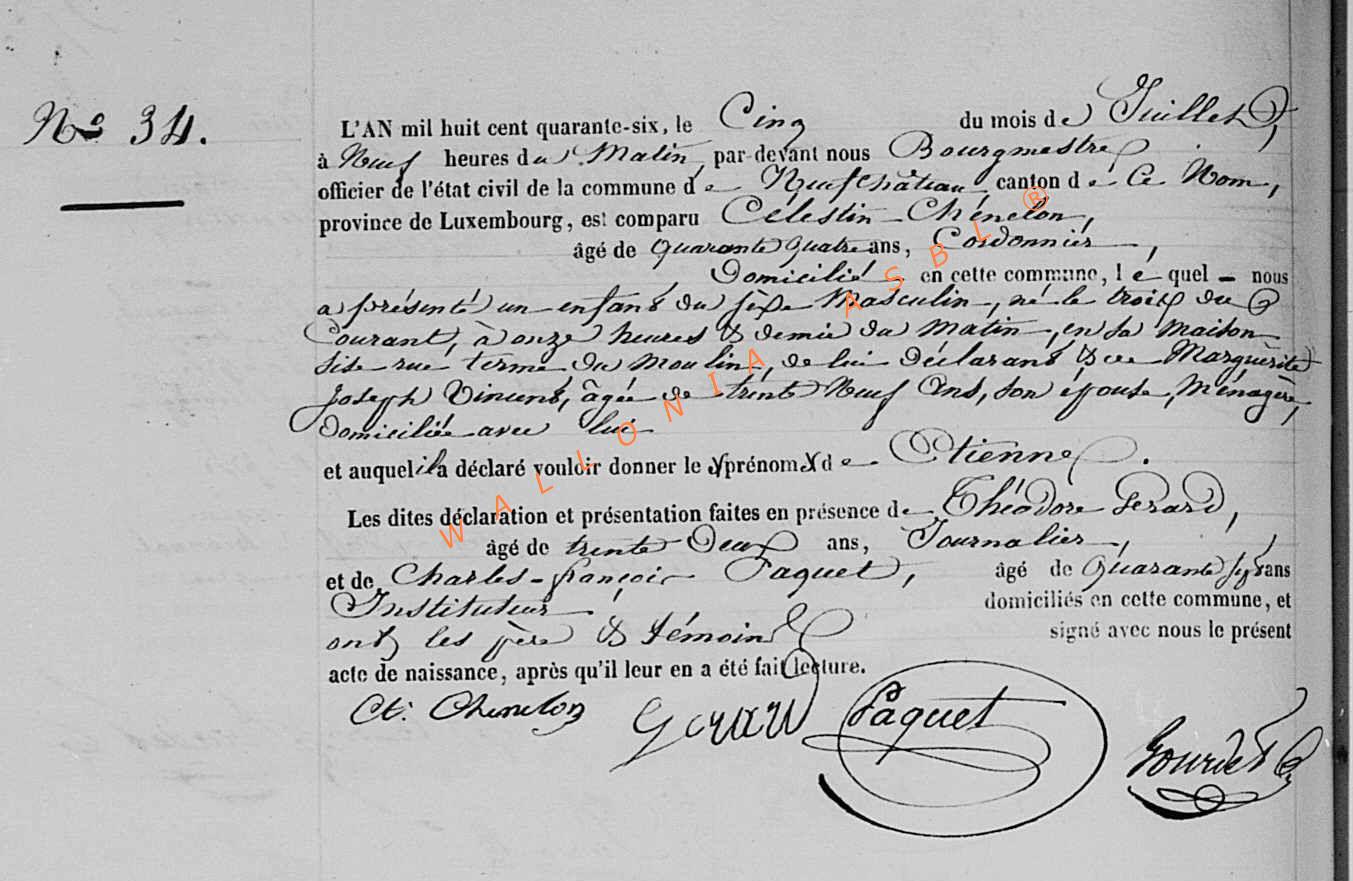 N° 34.
L'AN mil huit cent quarante-six, le Cinq du mois de Juillet,
à Neuf heures du Matin par-devant nous Bourgmestre
officier de l'état civil de la commune de Neufchâteau, canton de Ce Nom,
province de Luxembourg, est comparu Célestin Chénelon,
âgé de Quarante Quatre ans, Cordonnier,
Domicilié en cette commune, lequel nous
a présenté un enfant du sèxe Masculin, né le trois du
Courant, à onze heures & demie du matin, en sa maison
sise rue terme du Moulin, de lui déclarant & de Marguérite
Joseph Vincent, âgée de trente Neuf Ans, son épouse, Ménagère,
domiciliée avec lui
et auquel il a déclaré vouloir donner le prénom de Etienne.
Les dites déclaration et présentation faites en présence de Théodore Gerard,
âgé de trente Deux ans, Journalier,
et de Charles-françois Paquet, âgé de Quarante sept ans
Instituteur domiciliés en cette commune, et
ont les père & témoins signé avec nous le présent
acte de naissance, après qu'il leur en a été fait lecture.
Ct. Chenelon Gerard Paquet Gourdet
WALLONIA ASBL ®